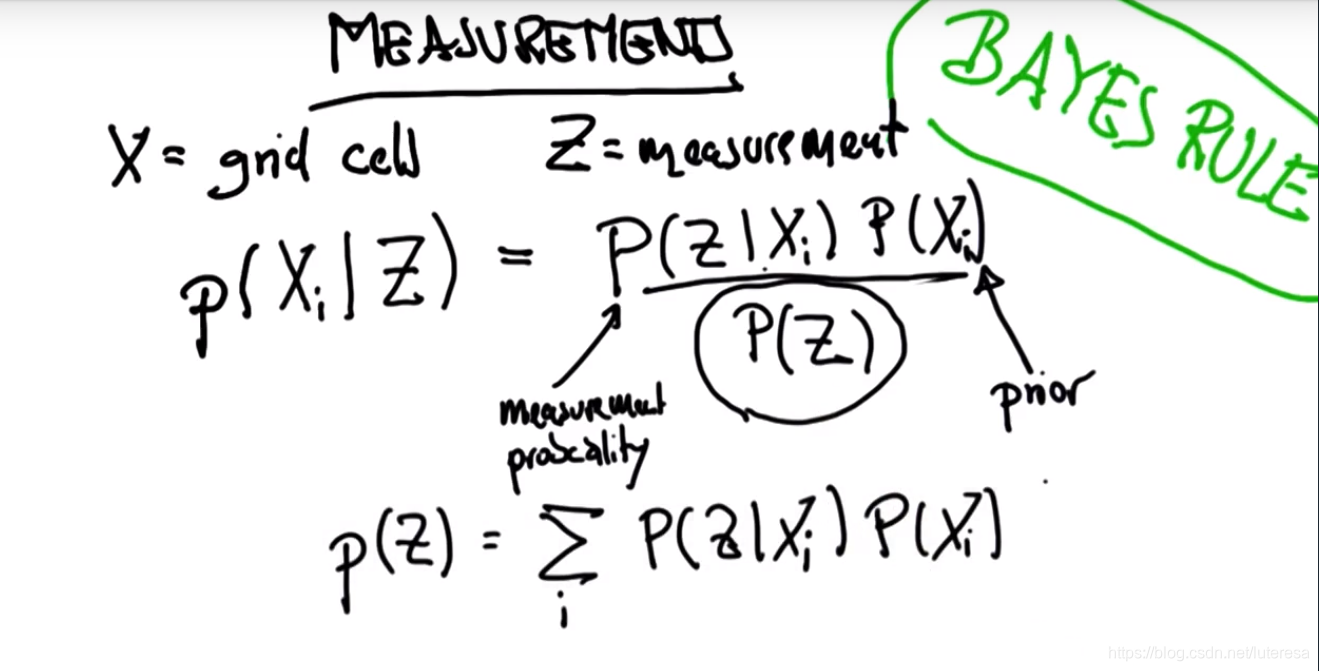 MEASUREMENT
BAYES RULE
X = grid cell Z = measurement
p(Xi|Z) = P(Z|Xi) P(Xi)
P(Z)
measurement
probability
prior
p(Z) = Σ P(Z|Xi) P(Xi)
i
https://blog.csdn.net/luteresa